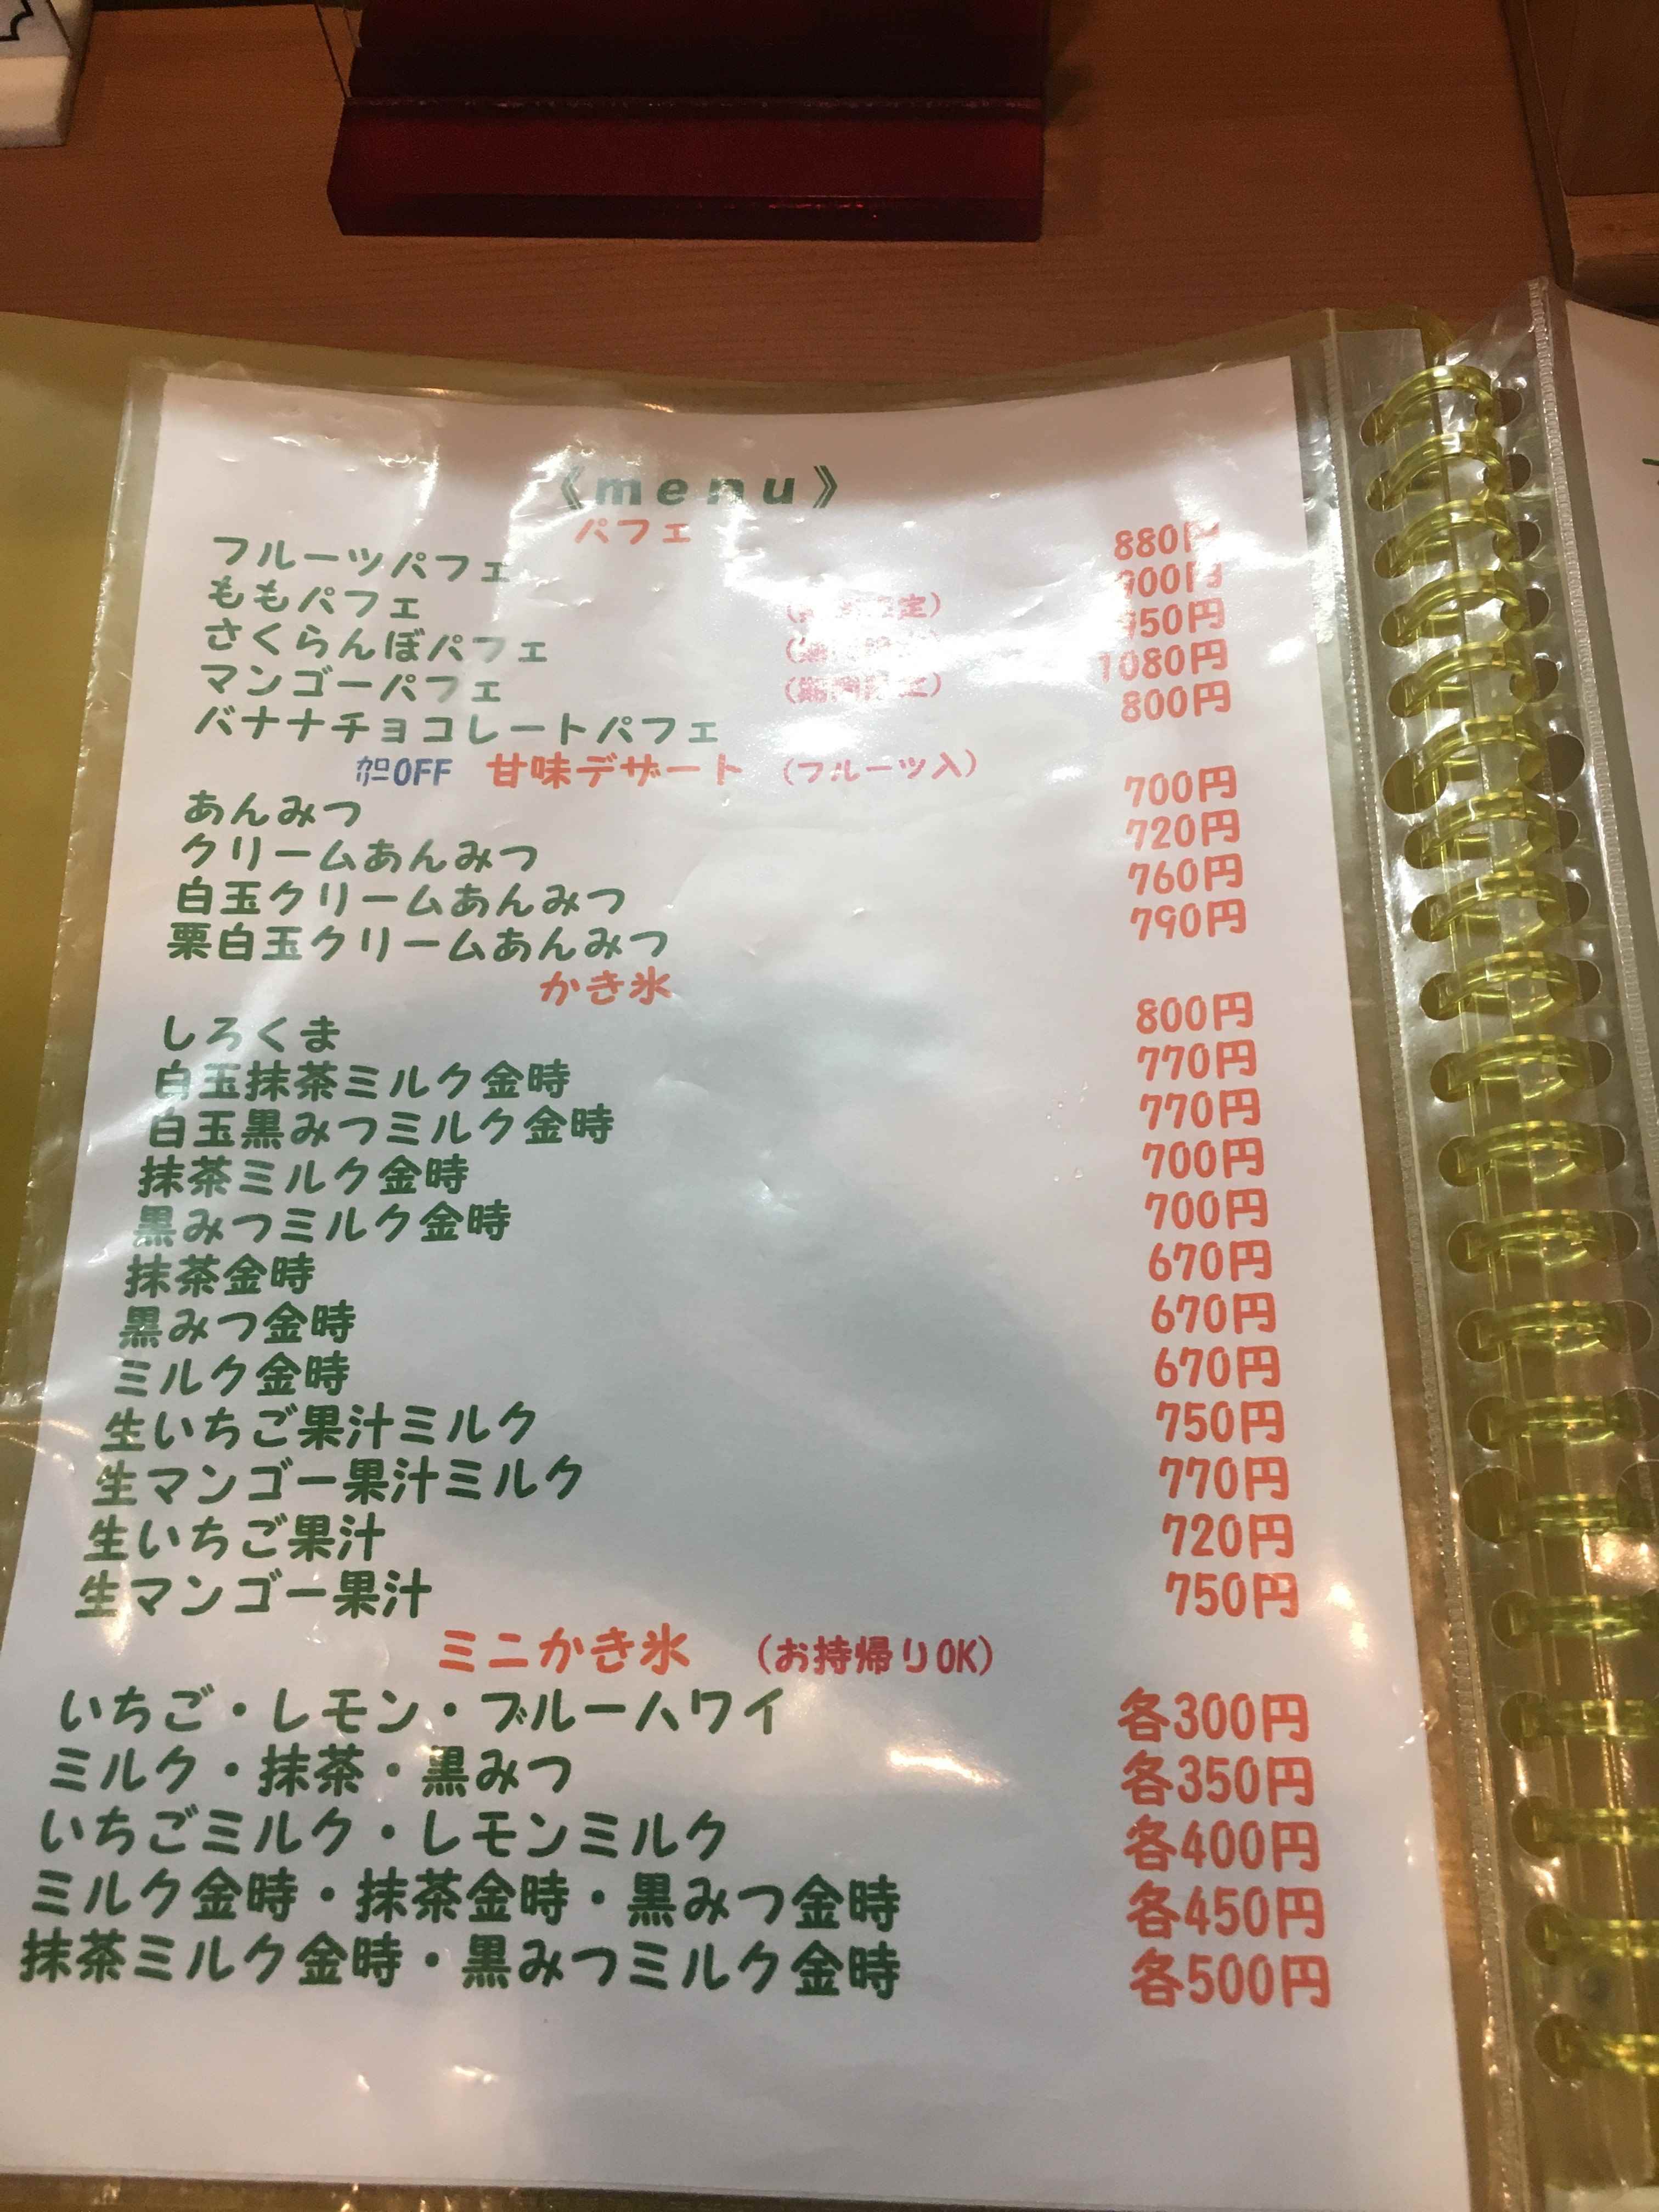 《menu》
パフェ
フルーツパフェ 880円
ももパフェ 900円
さくらんぼパフェ 950円
マンゴーパフェ (期間限定) 1080円
バナナチョコレートパフェ 800円
カロOFF 甘味デザート (フルーツ入)
あんみつ 700円
クリームあんみつ 720円
白玉クリームあんみつ 760円
栗白玉クリームあんみつ 790円
かき氷
しろくま 800円
白玉抹茶ミルク金時 770円
白玉黒みつミルク金時 770円
抹茶ミルク金時 700円
黒みつミルク金時 700円
抹茶金時 670円
黒みつ金時 670円
ミルク金時 670円
生いちご果汁ミルク 750円
生マンゴー果汁ミルク 770円
生いちご果汁 720円
生マンゴー果汁 750円
ミニかき氷 (お持帰りOK)
いちご・レモン・ブルーハワイ 各300円
ミルク・抹茶・黒みつ 各350円
いちごミルク・レモンミルク 各400円
ミルク金時・抹茶金時・黒みつ金時 各450円
抹茶ミルク金時・黒みつミルク金時 各500円